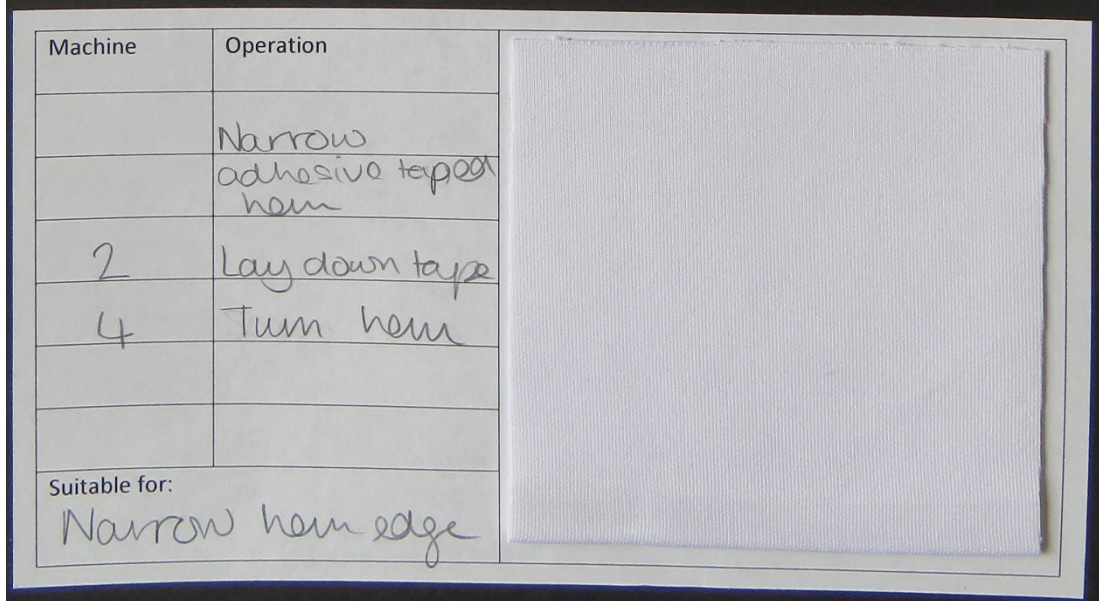 Machine Operation
Narrow
adhesive taped
hem
2 Lay down tape
4 Turn hem
Suitable for:
Narrow hem edge